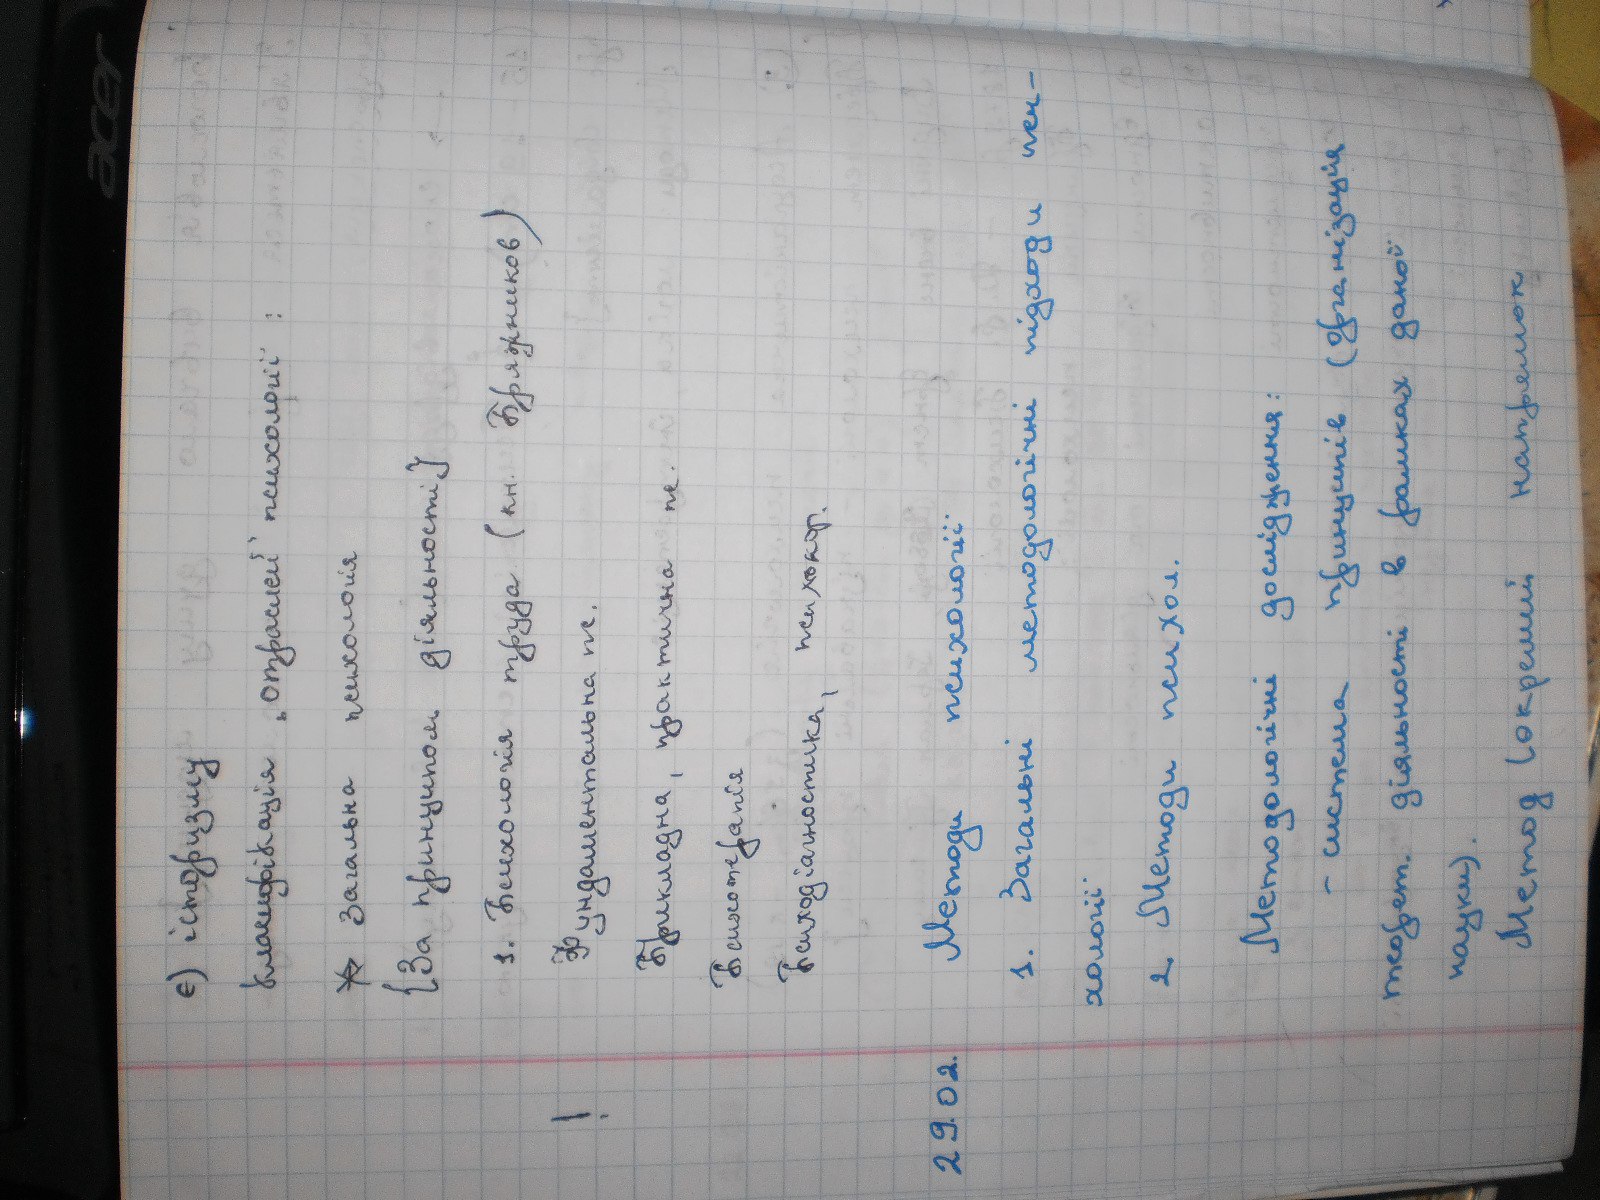 acer
є) історизму
класифікація „отраслей" психології :
☆ Загальна психологія
{За принципом діяльності}
1. Психологія труда (кн. Пряжников)
! Фундаментальна пс.
Прикладна, практична пс.
Психотерапія
Психодіагностика, психокор.
29.02. Методи психології
1. Загальні методологічні підходи пси-
хології
2. Методи психол.
Методологічні дослідження:
- система принципів (організація
теорет. діяльності в рамках даної
науки).
Метод (окремий напрямок